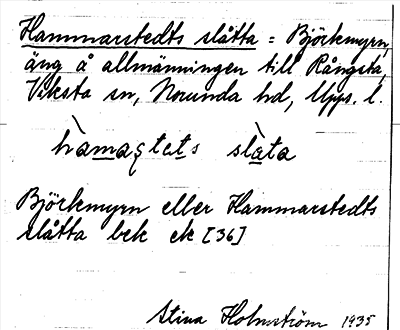 Hammarstedts slåtta = Björkmyrn,
äng å allmänningen till Rångsta,
Viksta sn, Norunda hd, Upps. l.
slàta
Björkmyrn eller Hammarstedts
slåtta bek ek [36]
Stina Holmström 1935